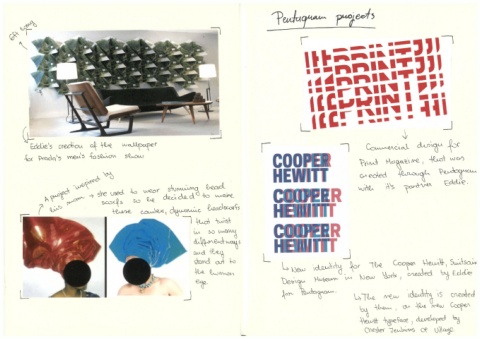 Eddie's creation of the wallpaper
for Prada's men's fashion show
A project inspired by
his mum → she used to wear stunning head
scarfs so he decided to make
these , dynamic headscarfs
that twist
in so many
different ways
and they
stand out to
the human
eye.
Pentagram projects
PRINT
PRINT
PRINT
Commercial design for
Print Magazine, that was
created through Pentagram
with its partner Eddie.
COOPER
HEWITT
COOPER
HEWITT
COOPER
HEWITT
New identity for The Cooper Hewitt,
Design Museum in New York, created by Eddie
for Pentagram.
The new identity is created
by them, on the new Cooper
Hewitt typeface, developed by
Chester Jenkins of Village